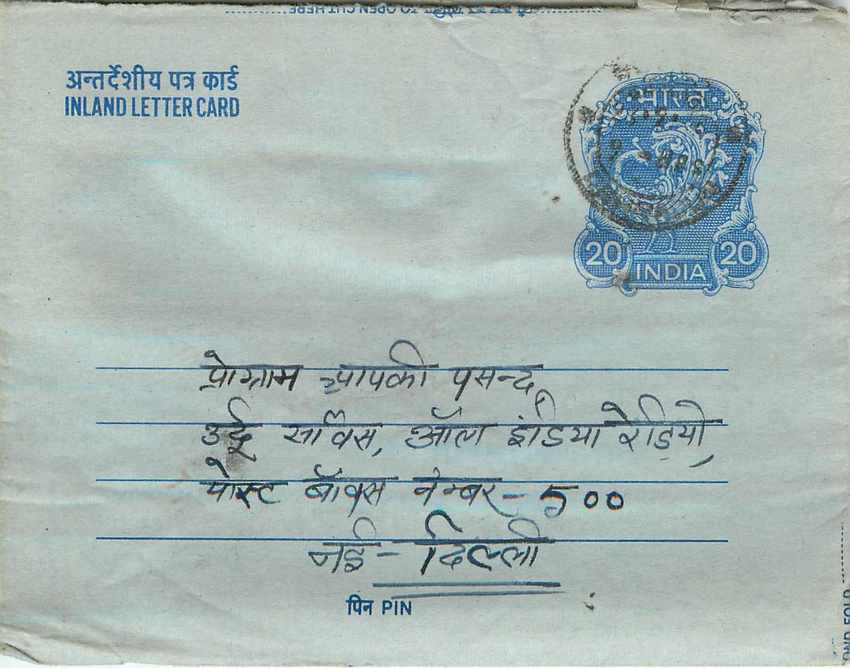 TO OPEN CUT HERE
अन्तर्देशीय पत्र कार्ड
INLAND LETTER CARD
भारत
20 20
INDIA
प्रोग्राम आपकी पसन्द,
उर्दू सर्विस, ऑल इंडिया रेडियो,
पोस्ट बॉक्स नम्बर - 500
नई - दिल्ली
पिन PIN
OND FOLD